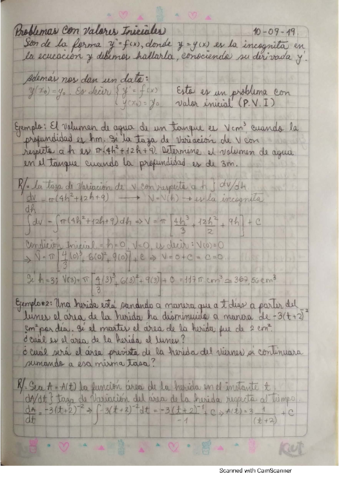 Problemas con Valores Iniciales 10-09-19
Son de la forma y' = f(x), donde y = y(x) es la incognita en
la ecuación y debemos hallarla, conociendo su derivada y'.
Además nos dan un dato:
y(x₀) = y₀. Es decir { y' = f(x) Este es un problema con
y(x₀) = y₀ valor inicial (P.V.I)
Ejemplo: El volumen de agua de un tanque es V cm³ cuando la
profundidad es hm. Si la tasa de variación de V con
respecto a h es π(4h²+12h+9). Determine el volumen de agua
en el tanque cuando la profundidad es de 3m.
R/= la tasa de variación de V con respecto a h | dV/dh
dv = π(4h²+12h+9) → V=V(h) → es la incognita
dh
∫dv = ∫π(4h²+12h+9)dh ⇒ V = π[4h³/3 + 12h²/2 + 9h] + C
Condición Inicial = h=0, v=0, es decir = V(0)=0
⇒ V = π[4/3(0)³, 6(0)², 9(0)] + C ⇒ V = 0+C = C=0
Si h=3: V(3)=π[4/3(3)³, 6(3)², 9(3)] + 0
Ejemplo#2: Una herida está sanando a manera que a t días a partir del
lunes el area de la herida ha disminuido a manera de -3(t+2)⁻²
cm² por día. Si el martes el area de la herida fue de 2 cm²
¿cual es el area de la herida el lunes?
¿cual será el area prevista de la herida del viernes si continuara
sanando a esa misma tasa?
R/ Sea A = A(t) la función area de la herida en el instante t
dA/dt: Tasa de variación del area de la herida respecto al tiempo
dA = -3(t+2)⁻² ∫-3(t+2)⁻² dt = -3(t+2)⁻¹/-1 + C, A(t) = 3 · 1/(t+2) + C
dt
Kiut
Scanned with CamScanner